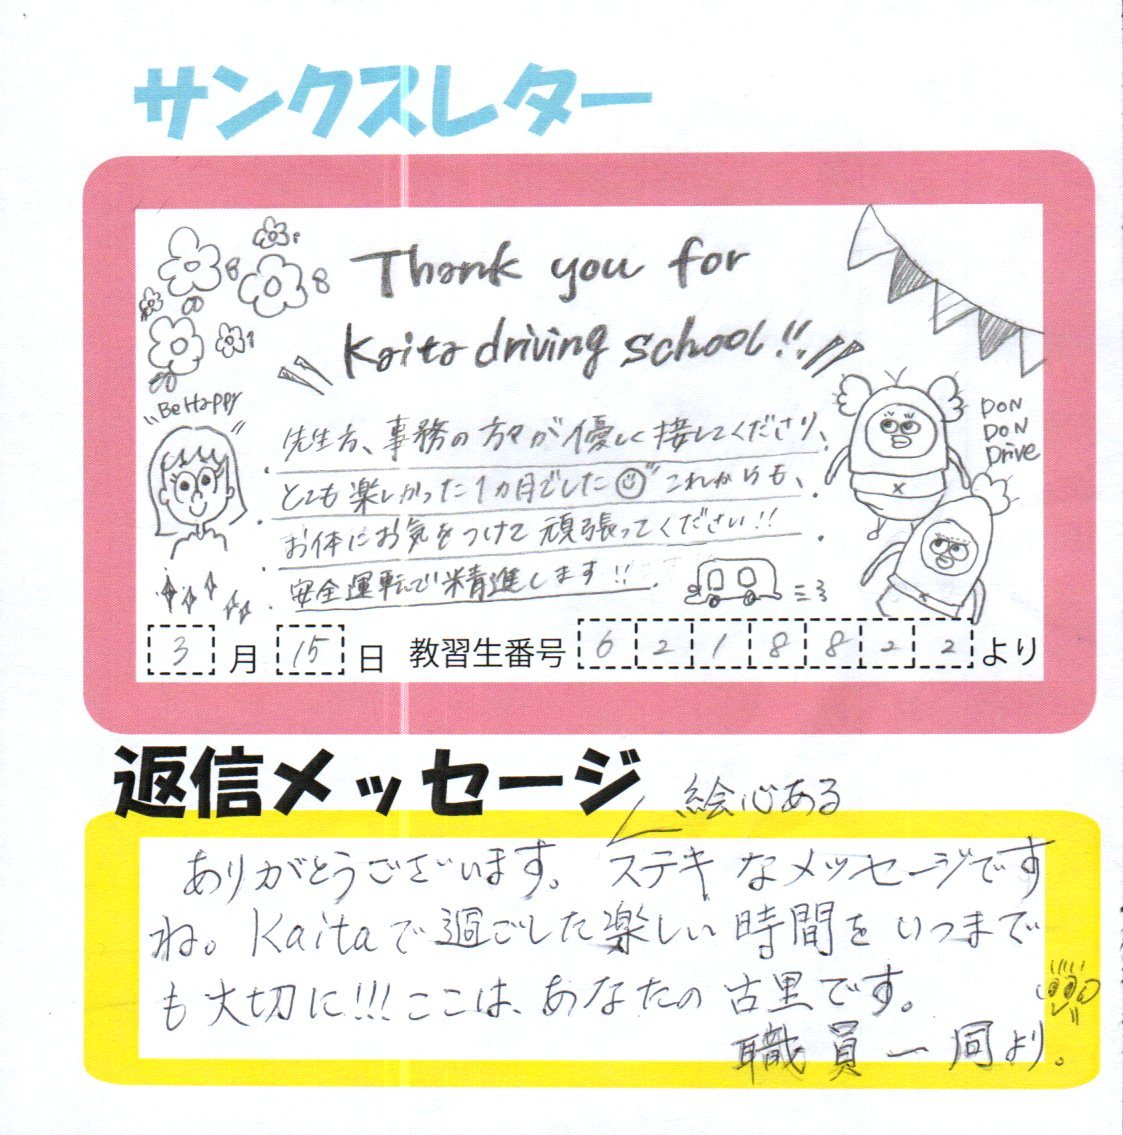 サンクスレター
Thank you for
Kaita driving school!!
Be Happy
先生方、事務の方々が優しく接してくださり、
とても楽しかった1ヵ月でした これからも、
お体にお気をつけて頑張ってください!!
安全運転で精進します!!
DON
DON
Drive
3月15日 教習生番号 62188222より
返信メッセージ
絵心ある
ありがとうございます。ステキなメッセージです
ね。Kaitaで過ごした楽しい時間をいつまで
も大切に!!!ここは、あなたの古里です。
職員一同より。